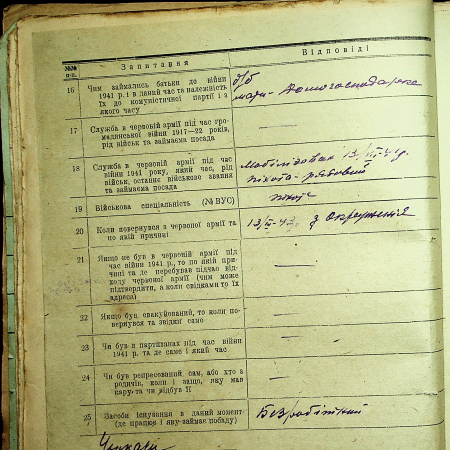 №№ п-п.
Запитання
Відповіді
16
Чим займались батьки до війни
1941 р. і в даний час та належність
їх до комуністичної партії і з
якого часу
б/б
мати - домогосподарка
17
Служба в червоній армії під час гро-
мадянської війни 1917—22 років,
рід військ та займаєма посада
—
18
Служба в червоній армії під час
війни 1941 року, який час, рід
військ, останнє військове звання
та займаєма посада
Мобілізован 13/
піхота-рядовий
19
Військова спеціальність (№ ВУС)
20
Коли повернувся з червоної армії та
по якій причині
з Окруження
21
Якщо не був в червоній армії під
час війни 1941 р., то по якій при-
чині та де перебував підчас від-
ходу червоної армії (чим може
підтвердити, а коли свідками то їх
адреса)
—
22
Якщо був евакуйований, то коли по-
вернувся та звідки саме
—
23
Чи був в партизанах під час війни
1941 р. та де саме і який час
—
24
Чи був репресований сам, або хто з
родичів, коли і защо, яку мав
кару та чи відбув її
—
25
Засоби існування в даний момент
(де працює і яку займає посаду)
Безробітний